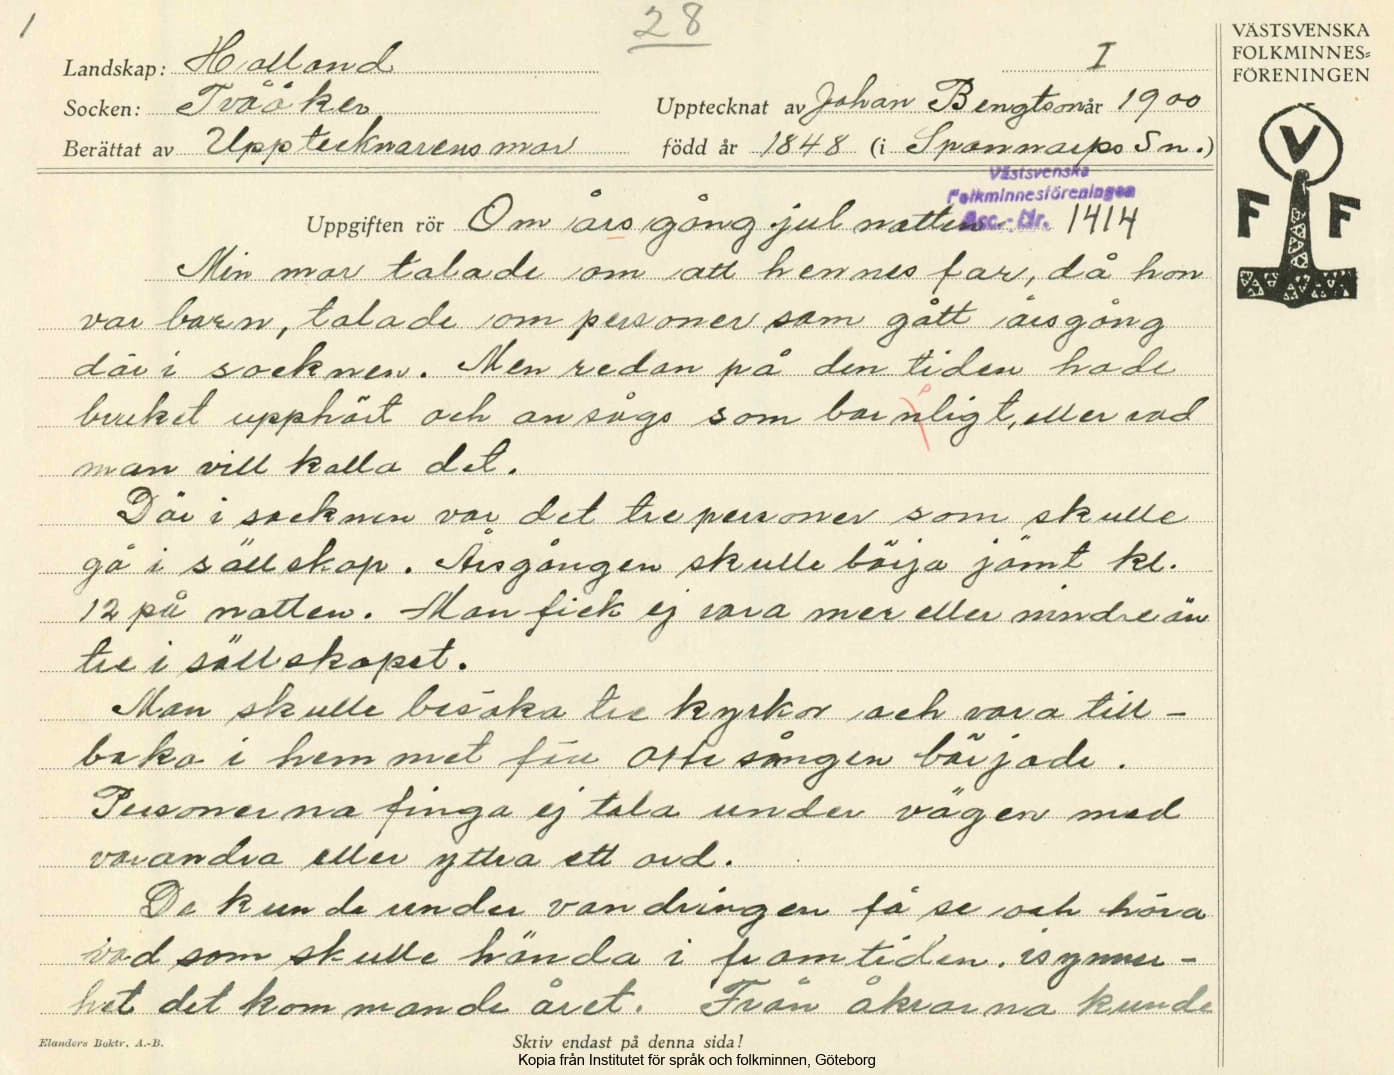 1
28
Landskap: Halland
I
Socken: Tvååker
Upptecknat av Johan Bengtson år 1900
Berättat av Upptecknarens mor
född år 1848 (i Spannarps Sn.)
VÄSTSVENSKA
FOLKMINNES=
FÖRENINGEN
V
F F
Västsvenska
Folkminnesföreningen
Acc.-Nr. 1414
Uppgiften rör Om årsgång julnatten
Min mor talade om att hennes far, då hon
var barn, talade om personer som gått årsgång
där i socknen. Men redan på den tiden hade
bruket upphört och ansågs som barnligt, eller vad
man vill kalla det.
Där i socknen var det tre personer som skulle
gå i sällskap. Årsgången skulle börja jämt kl.
12 på natten. Man fick ej vara mer eller mindre än
tre i sällskapet.
Man skulle besöka tre kyrkor och vara till-
baka i hemmet för ottesången började.
Personerna finga ej tala under vägen med
varandra eller yttra ett ord.
De kunde under vandringen få se och höra
vad som skulle hända i framtiden. isynner-
het det kommande året. Från åkrarna kunde
Elanders Boktr. A.-B.
Skriv endast på denna sida!
Kopia från Institutet för språk och folkminnen, Göteborg